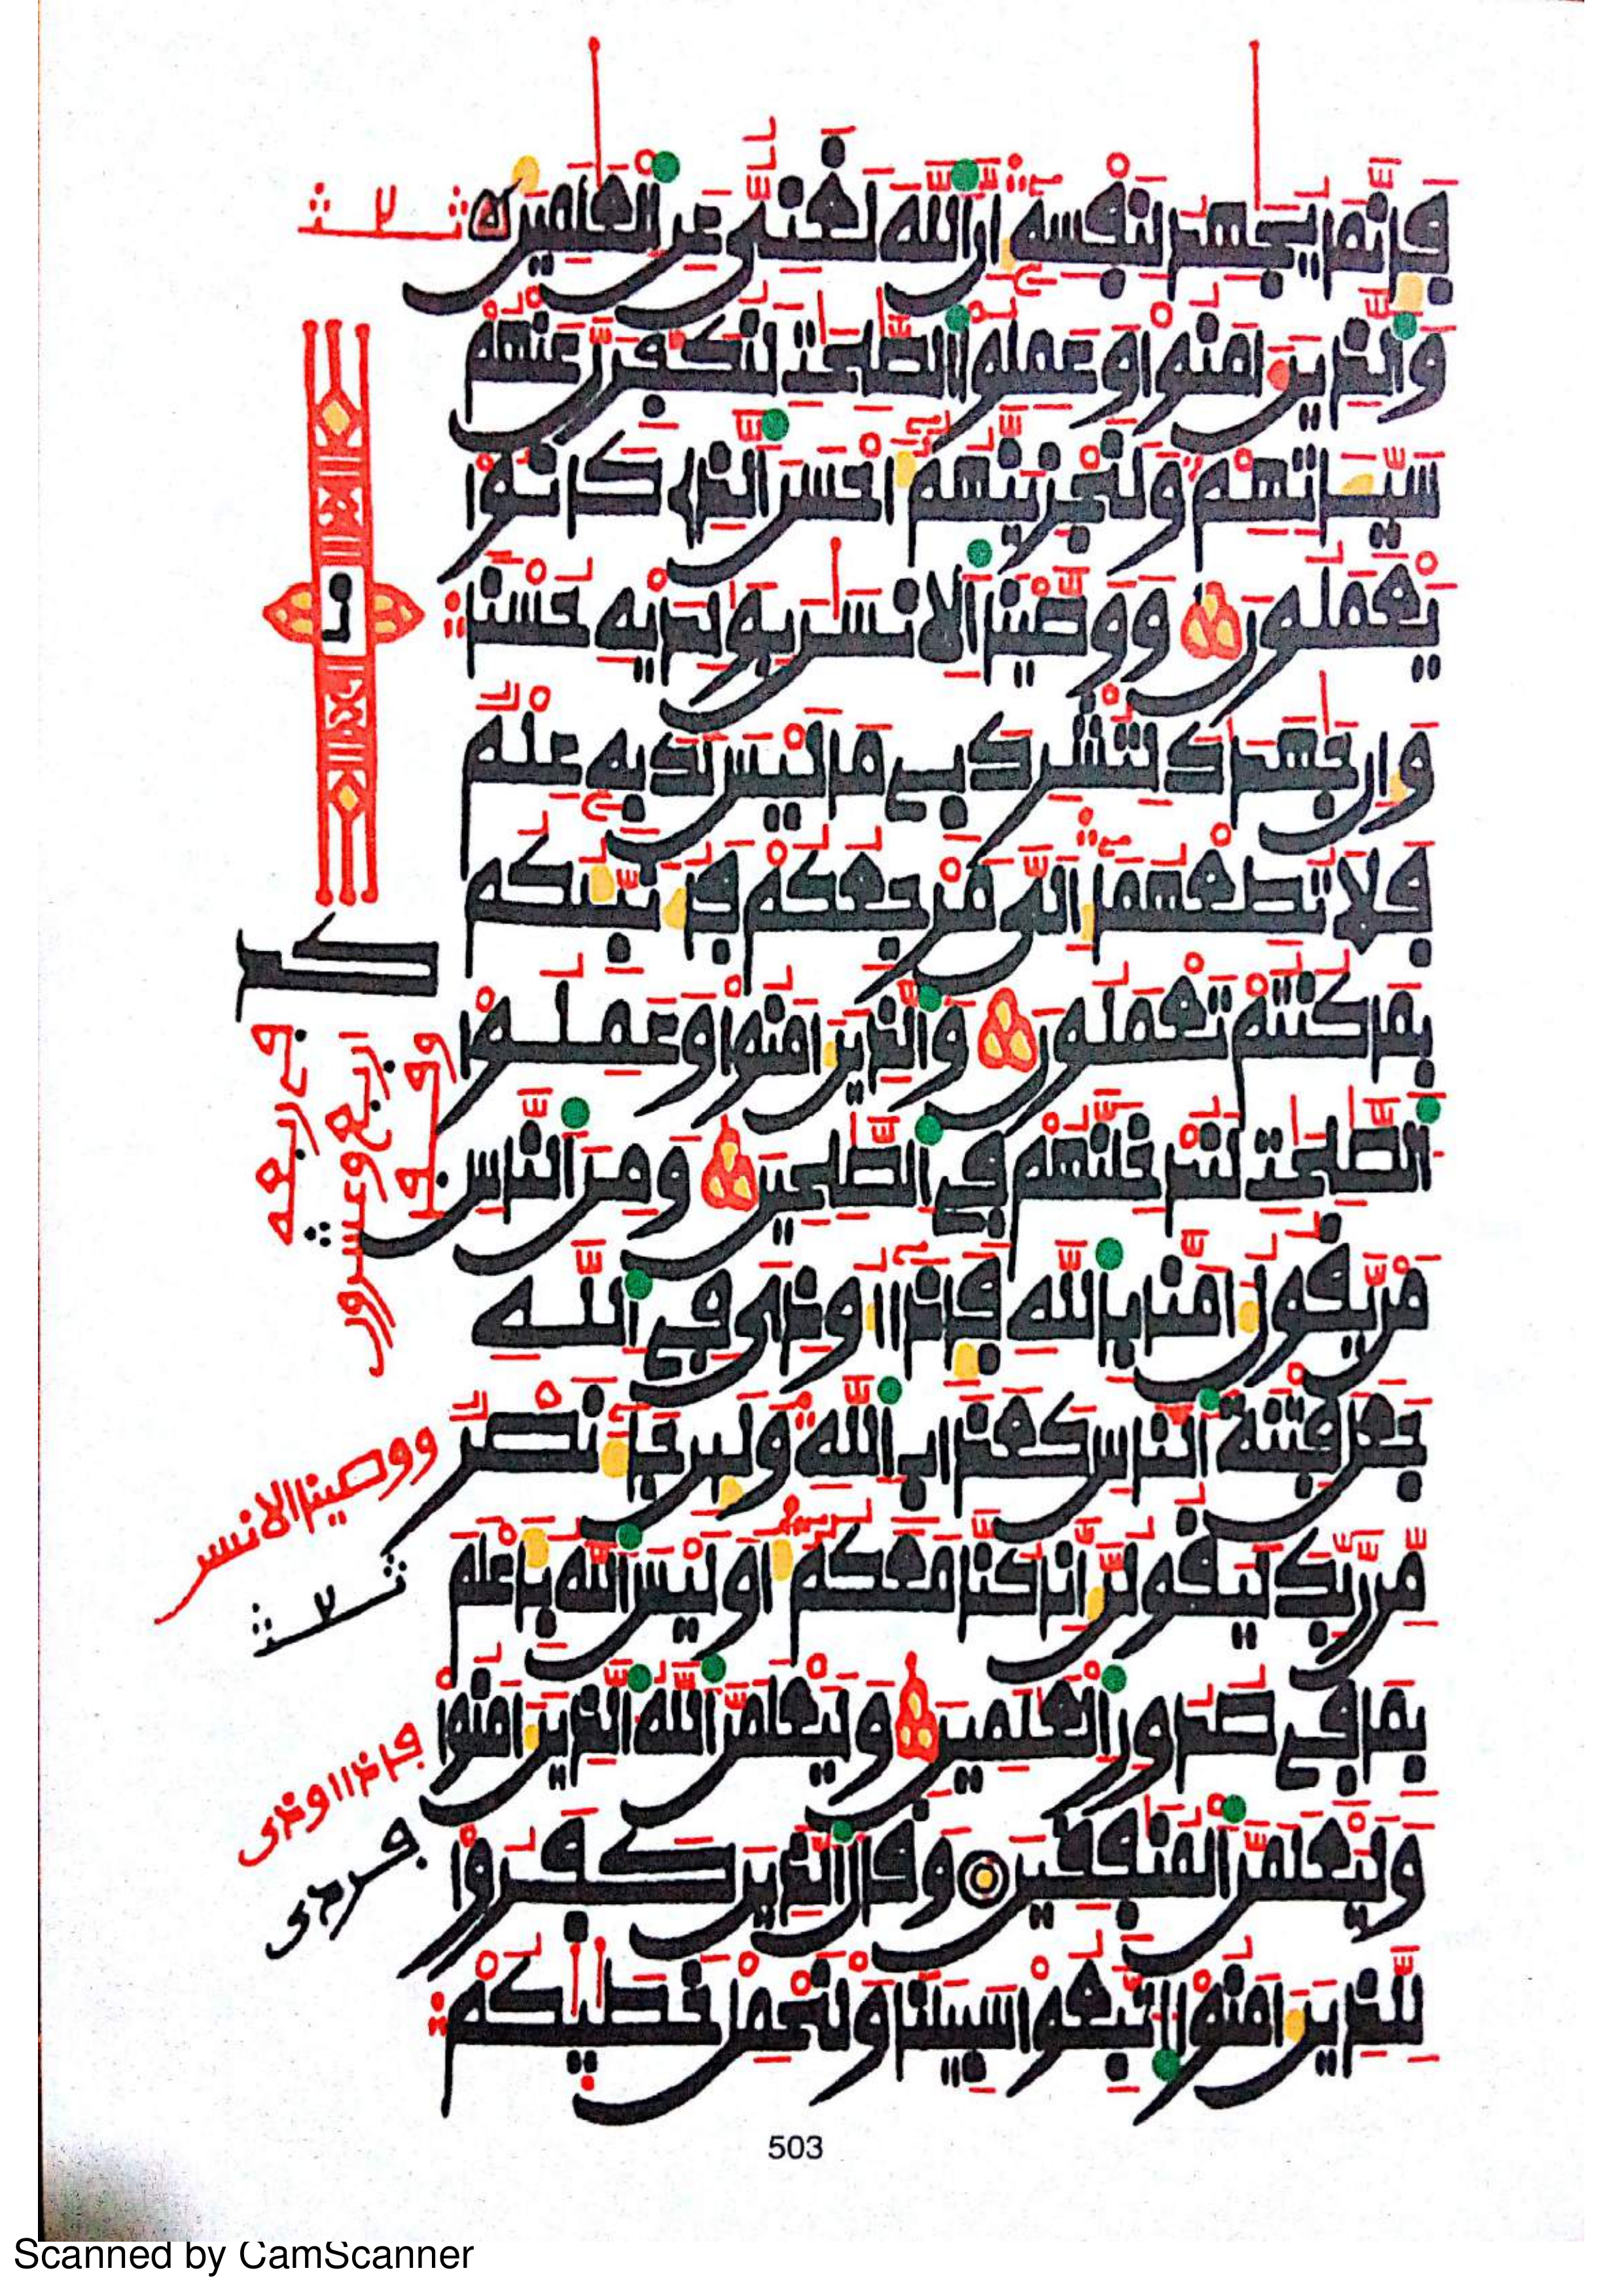 فإنما يجهد لنفسه إن الله لغني عن العلمين
والذين ءامنوا وعملوا الصلحت لنكفرن عنهم
سيئاتهم ولنجزينهم أحسن الذي كانوا
يعملون ووصينا الانسن بولديه حسنا
وإن جهدك لتشرك بي ما ليس لك به علم
فلا تطعهما إلي مرجعكم فأنبئكم
بما كنتم تعملون والذين ءامنوا وعملوا
الصلحت لندخلنهم في الصلحين ومن الناس
من يقول ءامنا بالله فإذا أوذي في الله
جعل فتنة الناس كعذاب الله ولين جاء نصر
من ربك ليقولن إنا كنا معكم أو ليس الله بأعلم
بما في صدور العلمين وليعلمن الله الذين ءامنوا
وليعلمن المنفقين وقال الذين كفروا
للذين ءامنوا اتبعوا سبيلنا ولنحمل خطيكم
ووصينا الانسن
فإذا أوذي
503
Scanned by CamScanner